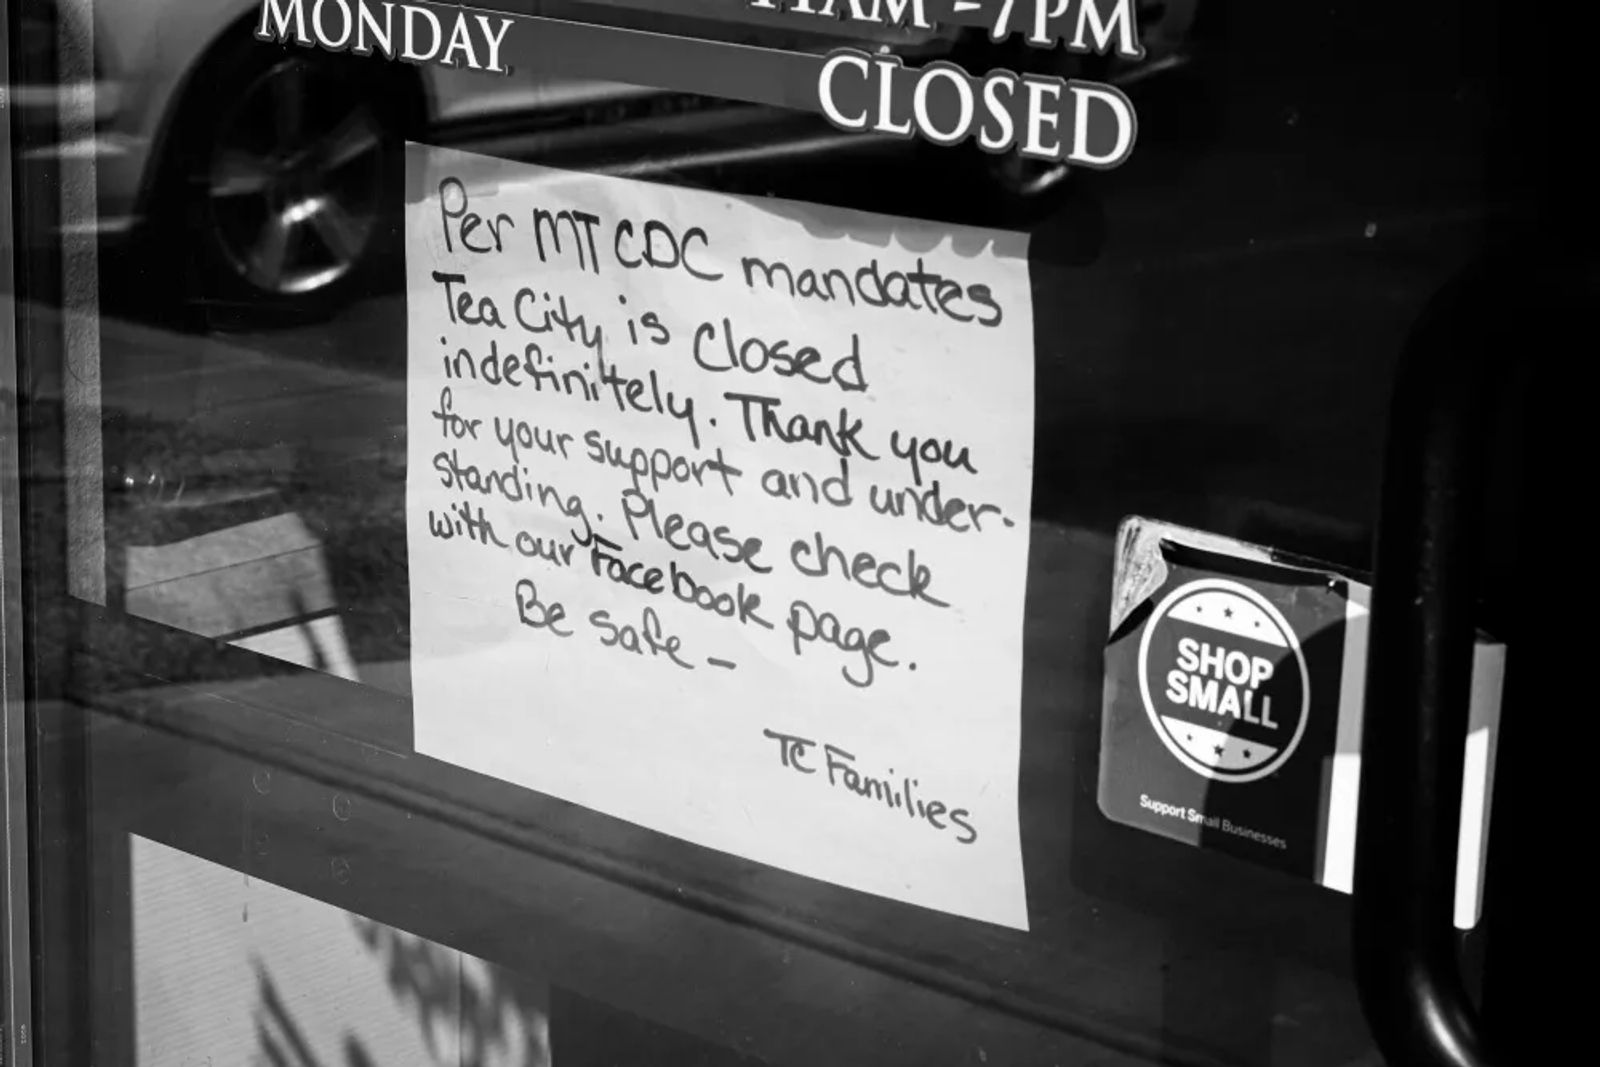 11AM - 7PM
MONDAY CLOSED
Per MT CDC mandates
Tea City is closed
indefinitely. Thank you
for your support and under-
standing. Please check
with our Facebook page.
Be safe -
TC Families
SHOP
SMALL
Support Small Businesses